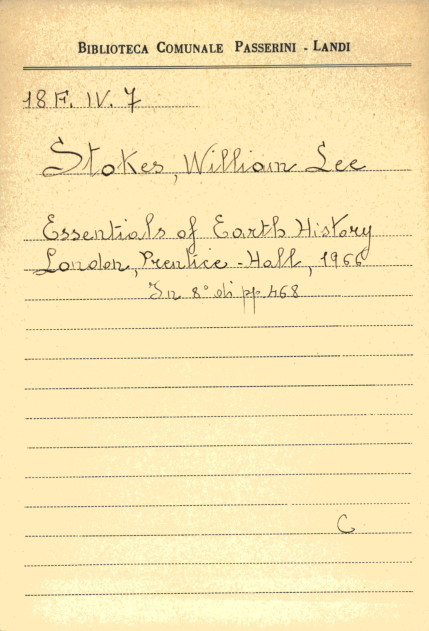 BIBLIOTECA COMUNALE PASSERINI - LANDI
18 F. IV. 7
Stokes, William Lee
Essentials of Earth History
London, Prentice - Hall, 1966
In 8° di pp 468
C